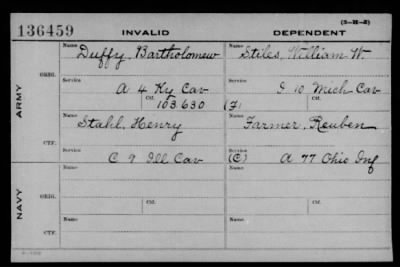 (3-M-3)
136459 INVALID DEPENDENT
Name Duffy, Bartholomew Name Stiles, William W.
ORIG. Service Service
A 4 Ky Cav I 10 Mich Cav
Ctf. 103.630 Ctf. (F)
ARMY
Name Stahl, Henry Name Farmer, Reuben
CTF. Service Service
C 9 Ill Cav (C) A 77 Ohio Inf
NAVY
Name Name
ORIG. Ctf. Ctf.
Name Name
CTF.